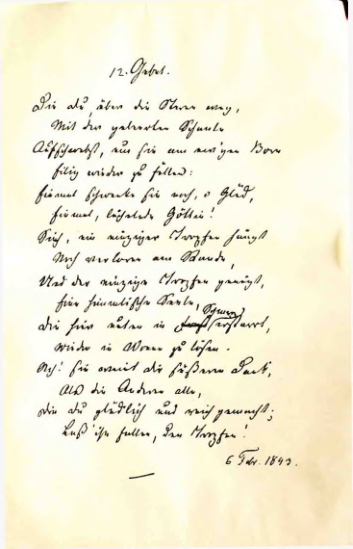 12. Gebet.
Die du, über die Sterne weg,
Mit der geleerten Schaale
Aufschwebst, um sie am ew'gen Born
Eilig wieder zu füllen:
Einmal schwenke sie noch, o Glück,
Einmal, lächelnde Göttin!
Sieh, ein einziger Tropfen hängt
Noch verloren am Rande,
Und der einzige Tropfen genügt,
Eine himmlische Seele,
Schmerz
Die hier unten in erstarrt,
Wieder in Wonne zu lösen.
Ach! sie weint dir süßern Dank,
Als die Anderen alle,
Die du glücklich und reich gemacht;
Laß ihn fallen, den Tropfen!
6 Febr. 1843.